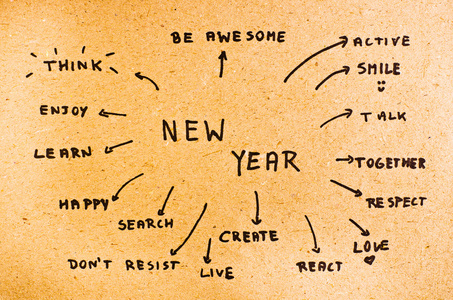 BE AWESOME
THINK
ACTIVE
SMILE
ENJOY
TALK
NEW
YEAR
LEARN
TOGETHER
HAPPY
RESPECT
SEARCH
CREATE
LOVE
DON'T RESIST
LIVE
REACT